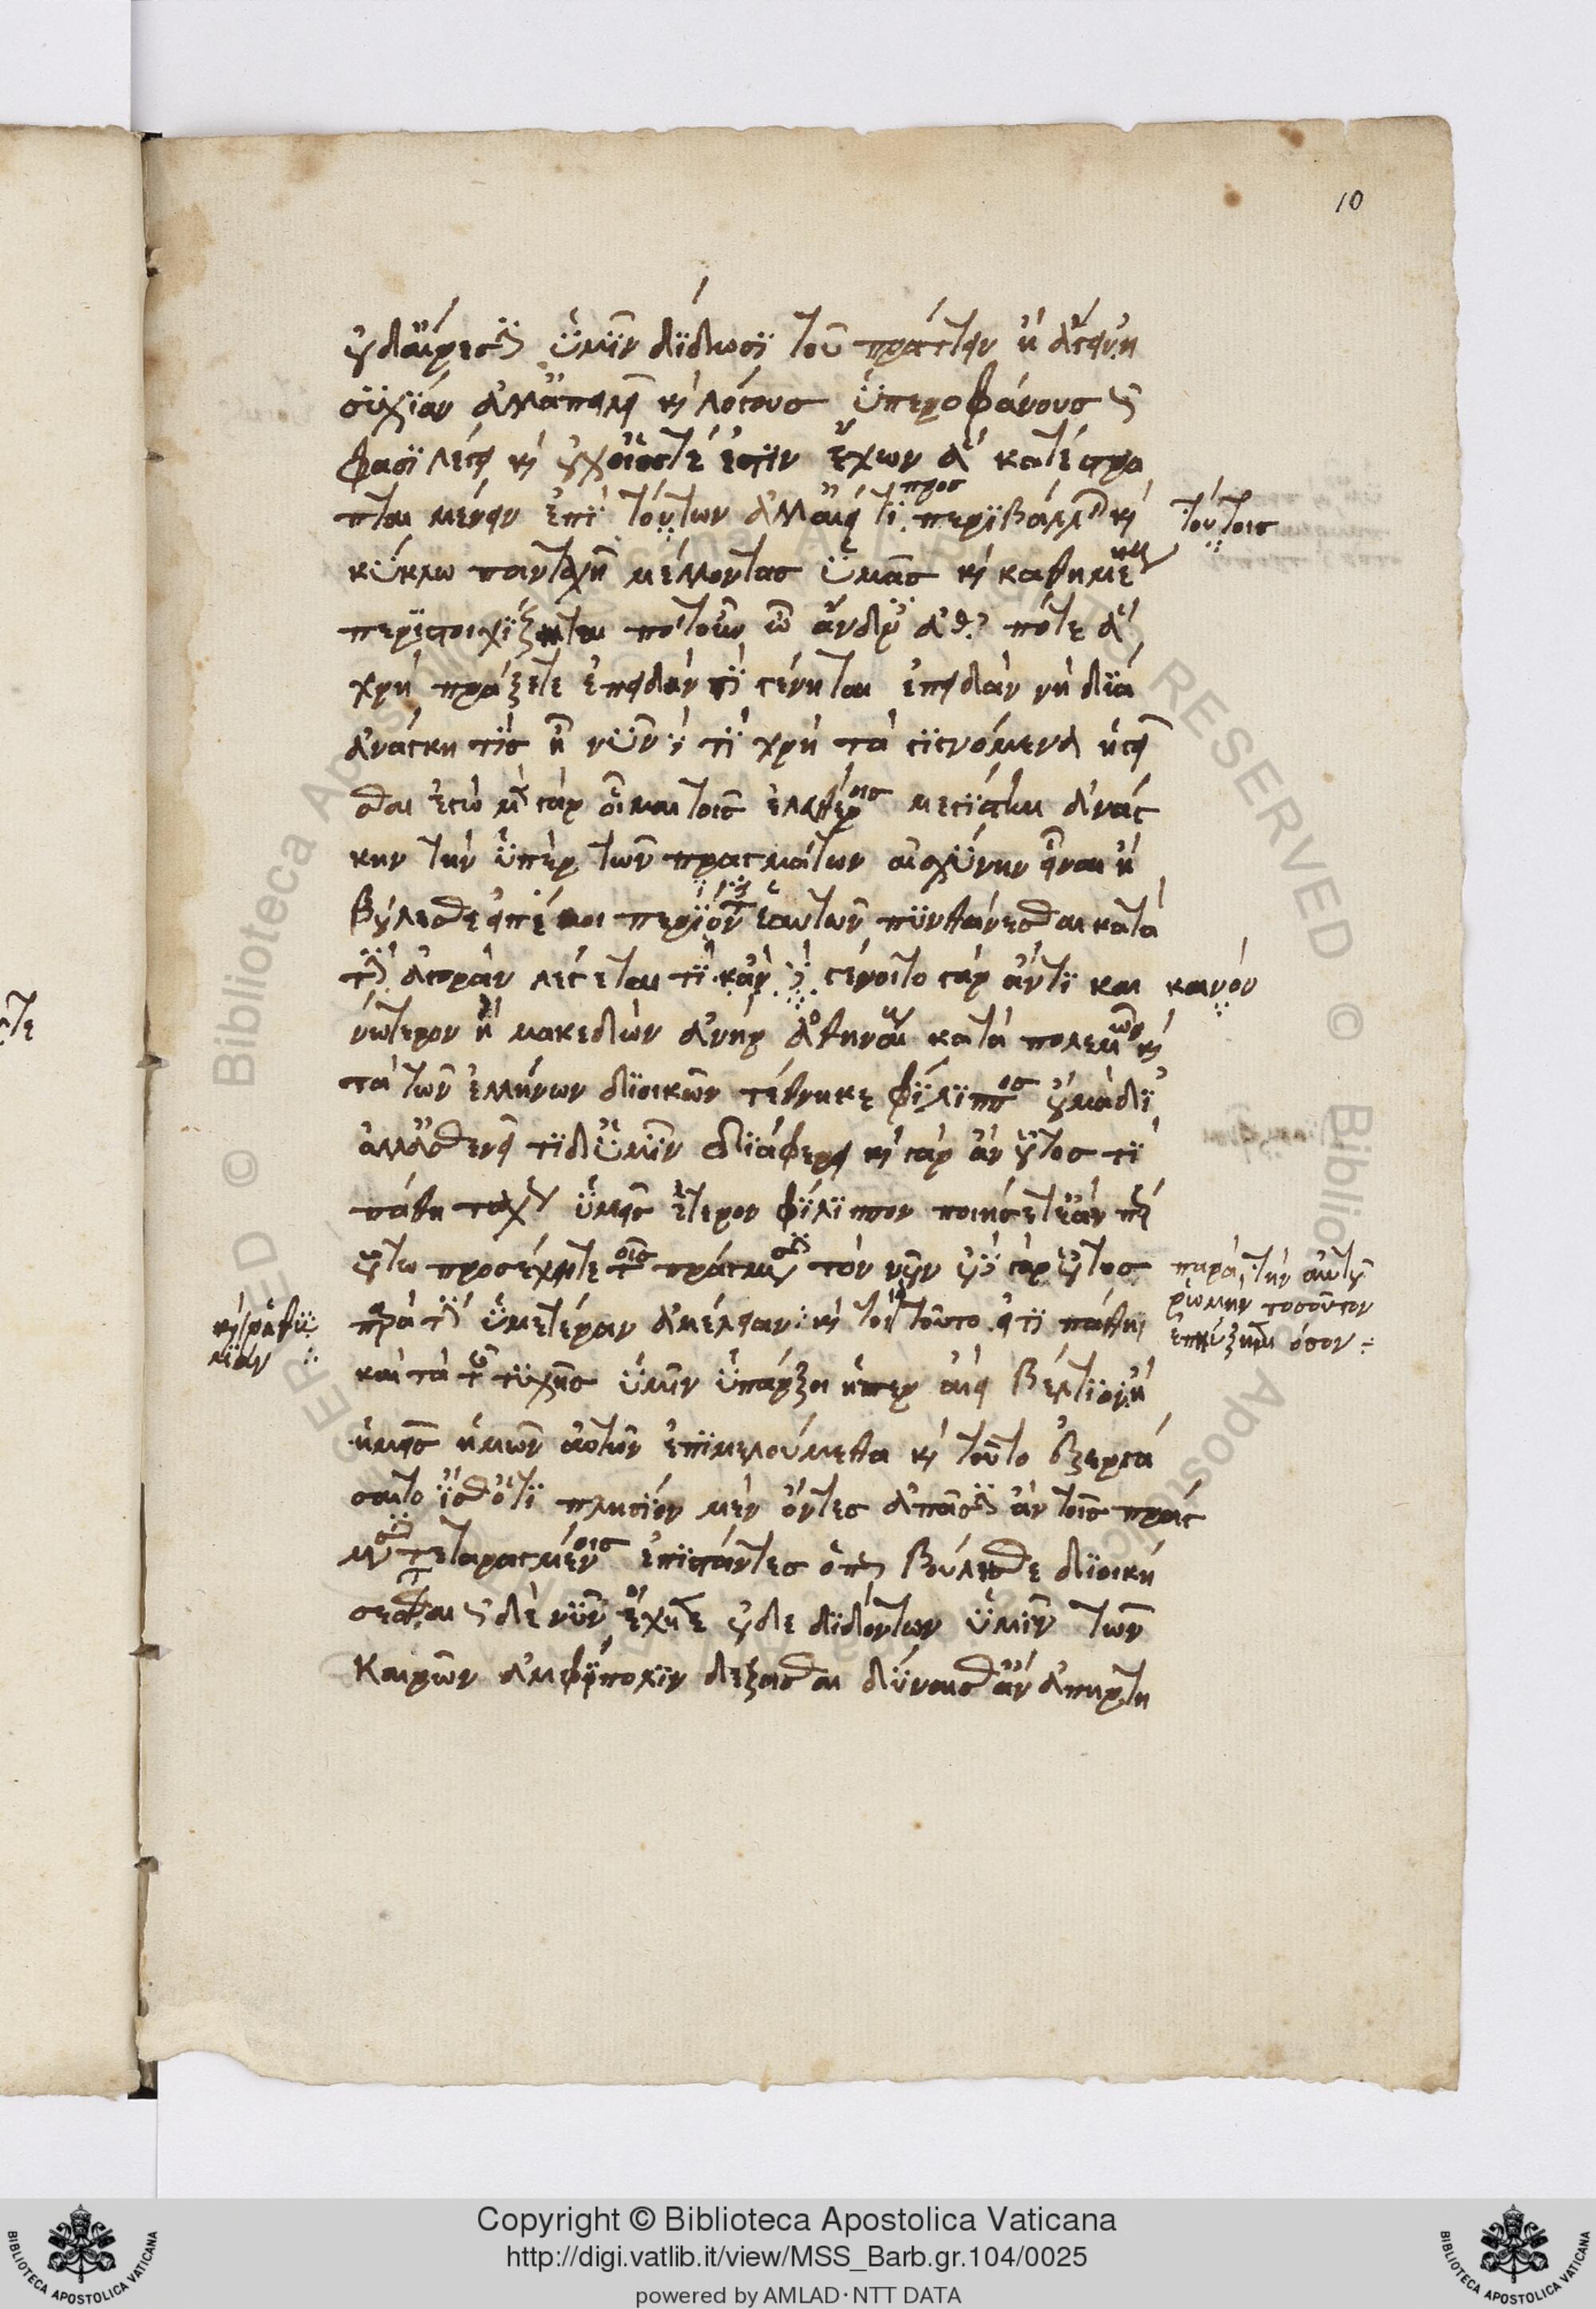 10
οὐδ' αἵρεσιν ὑμῖν δίδωσι τοῦ πράττειν ἢ ἄγειν ἡ
συχίαν ἀλλ' ἀπειλεῖ καὶ λόγους ὑπερηφάνους ὥς
φασι λέγει καὶ οὐχ οἷός τέ ἐστιν ἔχων ἃ κατέστρα
πται μένειν ἐπὶ τούτων ἀλλ' ἀεί τι προσπεριβάλλεται καὶ
τούτοις
κύκλῳ πανταχῇ μέλλοντας ὑμᾶς καὶ καθημένους
περιστοιχίζεται πότ' οὖν ὦ ἄνδρες ἀθ. πότε ἃ
χρὴ πράξετε ἐπειδὰν τί γένηται ἐπειδὰν νὴ δία
ἀνάγκη τις ᾖ νῦν δὲ τί χρὴ τὰ γιγνόμενα ἡγεῖ
σθαι ἐγὼ μὲν γὰρ οἶμαι τοῖς ἐλευθέροις μεγίστην ἀνάγ
κην τὴν ὑπὲρ τῶν πραγμάτων αἰσχύνην εἶναι ἢ
βούλεσθε εἰπέ μοι περιϊόντες ἑαυτῶν πυνθάνεσθαι κατὰ
τὴν ἀγορὰν λέγεταί τι καινόν γένοιτο γὰρ ἄν τι και
καινόν
νότερον ἢ μακεδὼν ἀνὴρ ἀθηναίους καταπολεμῶν καὶ
τὰ τῶν ἑλλήνων διοικῶν τέθνηκε φίλιππος οὐ μὰ δί'
ἀλλ' ἀσθενεῖ τί δ' ὑμῖν διαφέρει καὶ γὰρ ἂν οὗτός τι
πάθη ταχέως ὑμεῖς ἕτερον φίλιππον ποιήσετε ἄν περ
οὕτω προσέχητε τοῖς πράγμασι τὸν νοῦν οὐδὲ γὰρ οὗτος
παρὰ τὴν αὑτοῦ
ῥώμην τοσοῦτον
ἐπηύξηται ὅσον
παρὰ τὴν ὑμετέραν ἀμέλειαν καίτοι καὶ τοῦτο εἴ τι πάθη
καὶ ῥᾳθυ
μίαν
καὶ τὰ τῆς τύχης ὑμῖν ὑπάρξαι ἥπερ ἀεὶ βέλτιον ἢ
ἡμεῖς ἡμῶν αὐτῶν ἐπιμελούμεθα καὶ τοῦτο ἐξεργά
σαιτο ἴσθ' ὅτι πλησίον μὲν ὄντες ἅπασιν ἂν τοῖς πράγ
μασι τεταραγμένοις ἐπιστάντες ὅπως βούλεσθε διοική
σεσθαι ὡς δὲ νῦν ἔχετε οὐδὲ διδόντων ὑμῖν τῶν
Καιρῶν ἀμφίπολιν δέξασθαι δύναισθ' ἂν ἀπηρτη
Copyright © Biblioteca Apostolica Vaticana
http://digi.vatlib.it/view/MSS_Barb.gr.104/0025
powered by AMLAD · NTT DATA